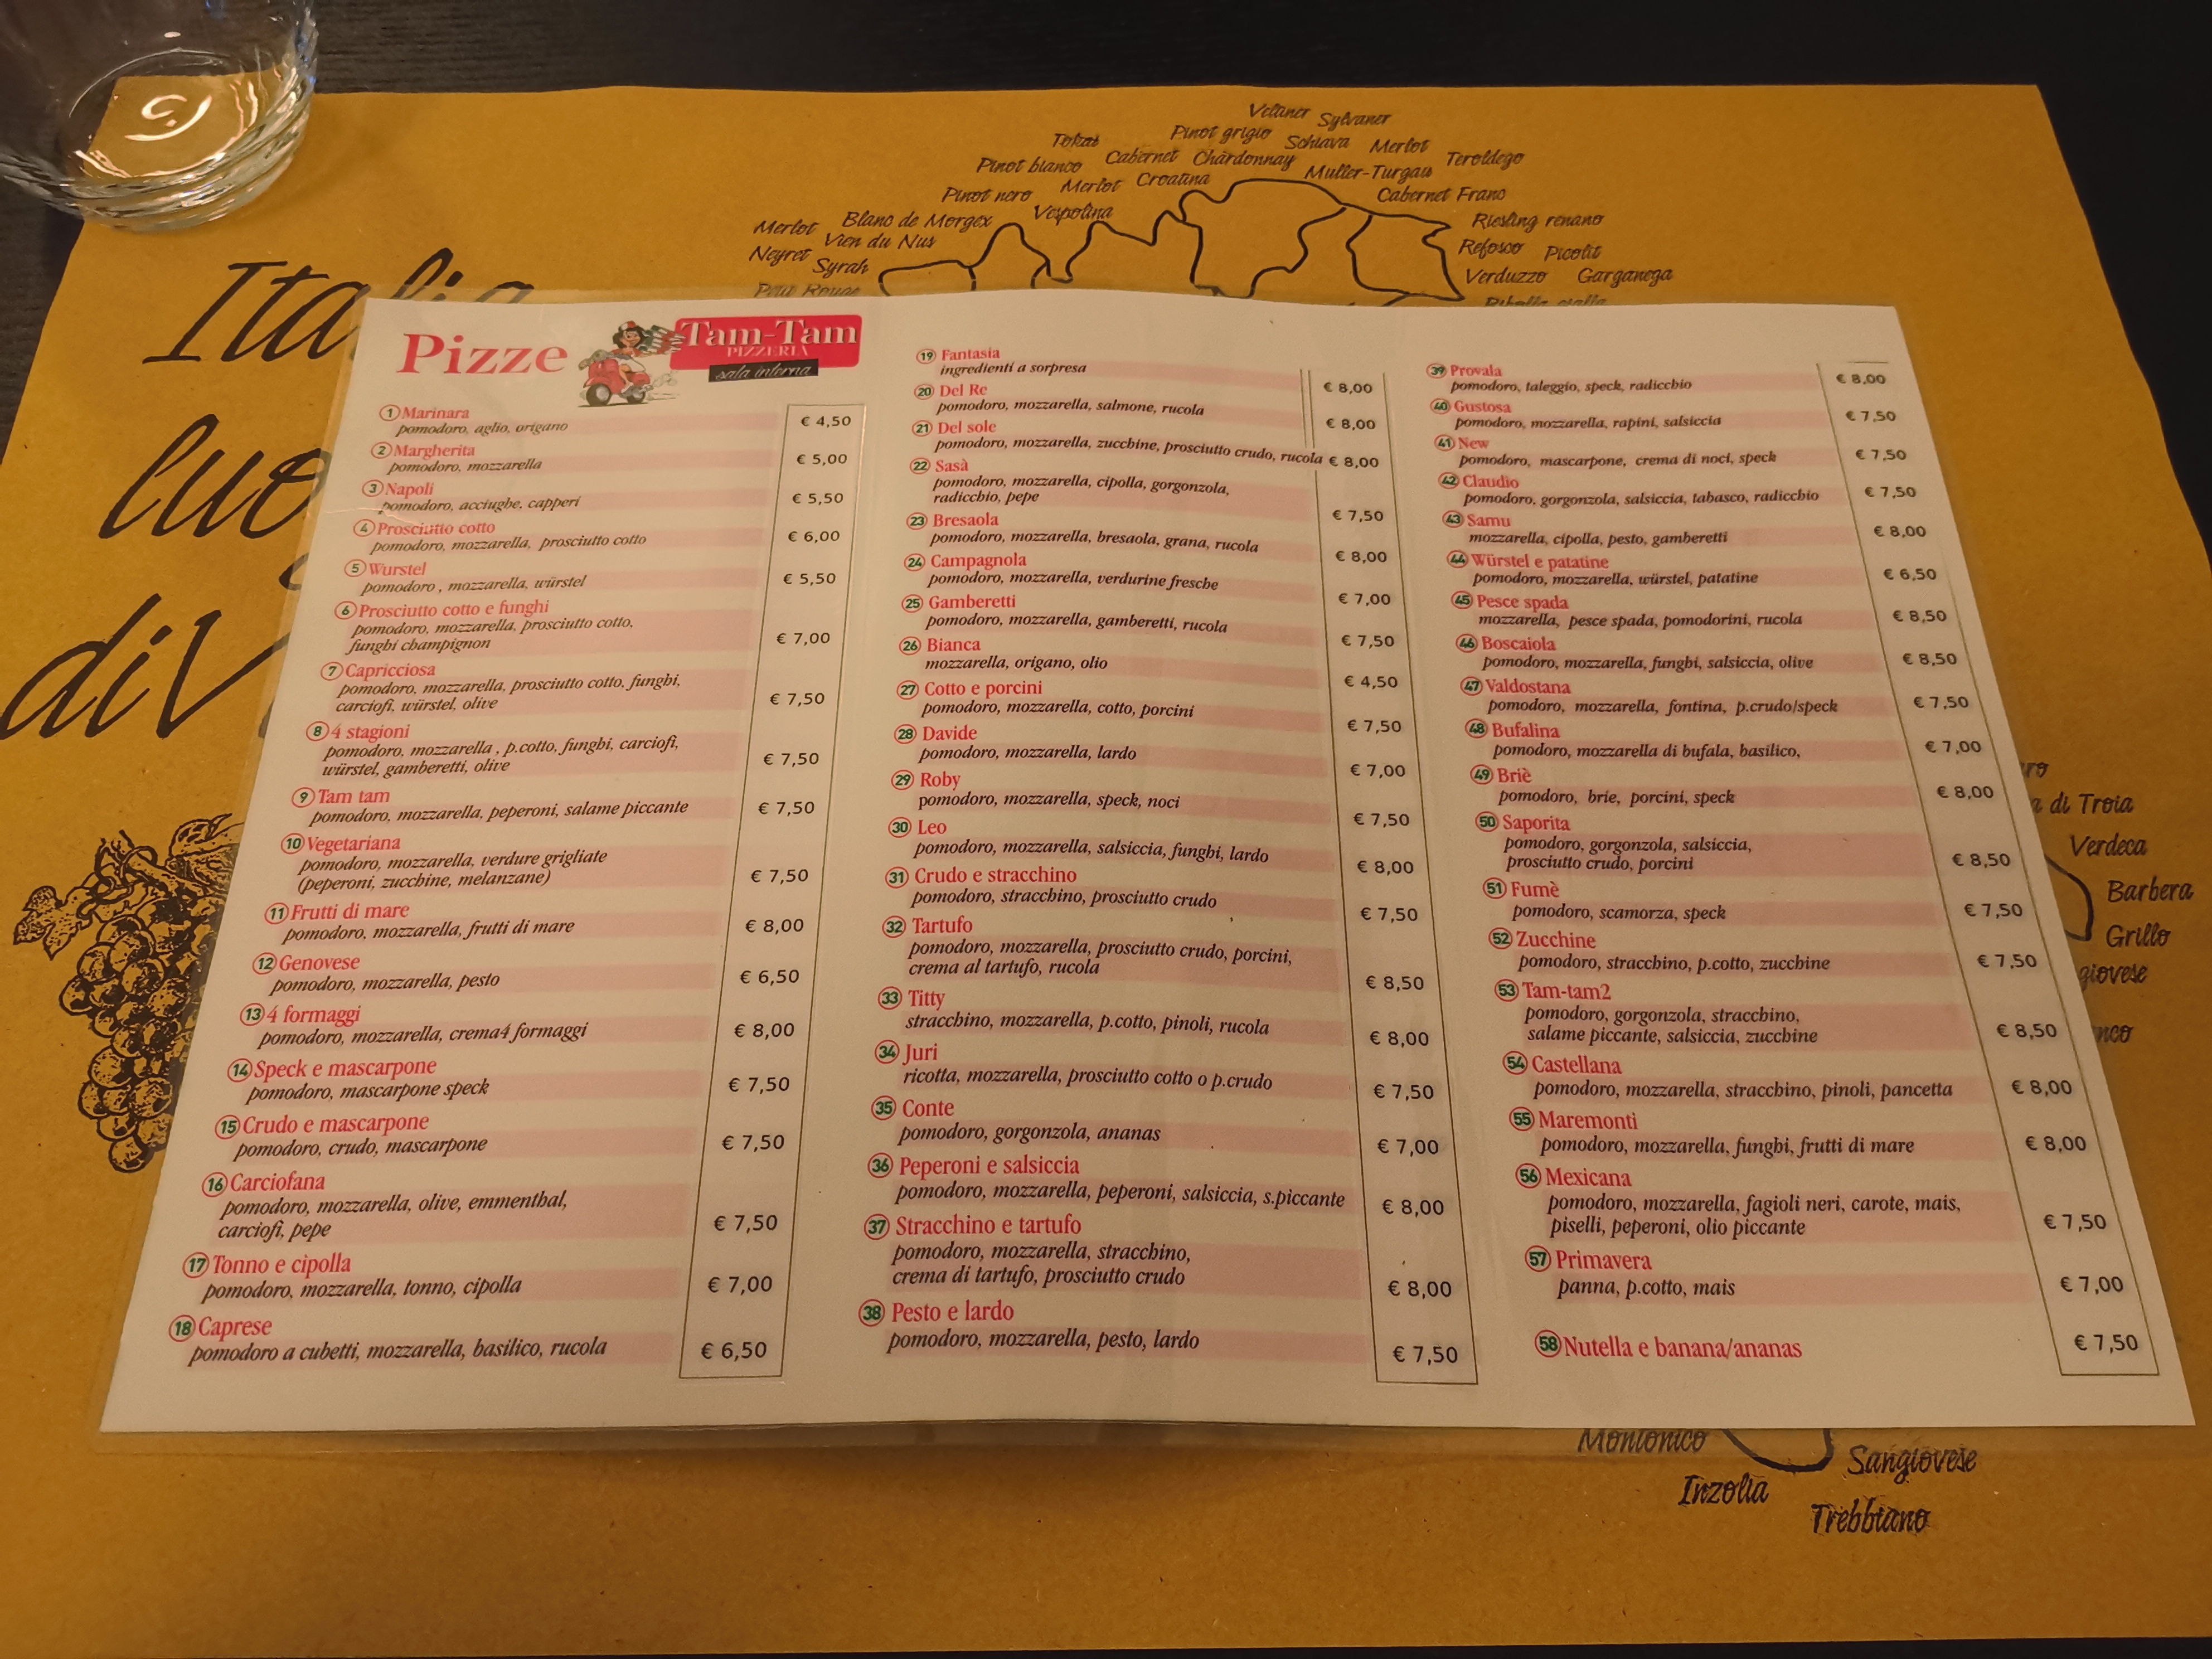 Velaner Sylvaner
Tokai Pinot grigio Schiava Merlot
Pinot bianco Cabernet Chardonnay Teroldego
Pinot nero Merlot Croatina Muller-Turgau
Cabernet Franc
Merlot Blanc de Morgex Vespolina
Riesling renano
Neyret Vien du Nus
Refosco Picolit
Syrah
Verduzzo Garganega
Petit Rouge
Ribolla gialla
Italia
luo
di V
Pizze
Tam-Tam
PIZZERIA
sala interna
1 Marinara
pomodoro, aglio, origano € 4,50
2 Margherita
pomodoro, mozzarella € 5,00
3 Napoli
pomodoro, acciughe, capperi € 5,50
4 Prosciutto cotto
pomodoro, mozzarella, prosciutto cotto € 6,00
5 Wurstel
pomodoro , mozzarella, würstel € 5,50
6 Prosciutto cotto e funghi
pomodoro, mozzarella, prosciutto cotto,
funghi champignon € 7,00
7 Capricciosa
pomodoro, mozzarella, prosciutto cotto, funghi,
carciofi, würstel, olive € 7,50
8 4 stagioni
pomodoro, mozzarella , p.cotto, funghi, carciofi,
würstel, gamberetti, olive € 7,50
9 Tam tam
pomodoro, mozzarella, peperoni, salame piccante € 7,50
10 Vegetariana
pomodoro, mozzarella, verdure grigliate
(peperoni, zucchine, melanzane) € 7,50
11 Frutti di mare
pomodoro, mozzarella, frutti di mare € 8,00
12 Genovese
pomodoro, mozzarella, pesto € 6,50
13 4 formaggi
pomodoro, mozzarella, crema4 formaggi € 8,00
14 Speck e mascarpone
pomodoro, mascarpone speck € 7,50
15 Crudo e mascarpone
pomodoro, crudo, mascarpone € 7,50
16 Carciofana
pomodoro, mozzarella, olive, emmenthal,
carciofi, pepe € 7,50
17 Tonno e cipolla
pomodoro, mozzarella, tonno, cipolla € 7,00
18 Caprese
pomodoro a cubetti, mozzarella, basilico, rucola € 6,50
19 Fantasia
ingredienti a sorpresa € 8,00
20 Del Re
pomodoro, mozzarella, salmone, rucola € 8,00
21 Del sole
pomodoro, mozzarella, zucchine, prosciutto crudo, rucola € 8,00
22 Sasà
pomodoro, mozzarella, cipolla, gorgonzola,
radicchio, pepe € 7,50
23 Bresaola
pomodoro, mozzarella, bresaola, grana, rucola € 8,00
24 Campagnola
pomodoro, mozzarella, verdurine fresche € 7,00
25 Gamberetti
pomodoro, mozzarella, gamberetti, rucola € 7,50
26 Bianca
mozzarella, origano, olio € 4,50
27 Cotto e porcini
pomodoro, mozzarella, cotto, porcini € 7,50
28 Davide
pomodoro, mozzarella, lardo € 7,00
29 Roby
pomodoro, mozzarella, speck, noci € 7,50
30 Leo
pomodoro, mozzarella, salsiccia, funghi, lardo € 8,00
31 Crudo e stracchino
pomodoro, stracchino, prosciutto crudo € 7,50
32 Tartufo
pomodoro, mozzarella, prosciutto crudo, porcini,
crema al tartufo, rucola € 8,50
33 Titty
stracchino, mozzarella, p.cotto, pinoli, rucola € 8,00
34 Juri
ricotta, mozzarella, prosciutto cotto o p.crudo € 7,50
35 Conte
pomodoro, gorgonzola, ananas € 7,00
36 Peperoni e salsiccia
pomodoro, mozzarella, peperoni, salsiccia, s.piccante € 8,00
37 Stracchino e tartufo
pomodoro, mozzarella, stracchino,
crema di tartufo, prosciutto crudo € 8,00
38 Pesto e lardo
pomodoro, mozzarella, pesto, lardo € 7,50
39 Provala
pomodoro, taleggio, speck, radicchio € 8,00
40 Gustosa
pomodoro, mozzarella, rapini, salsiccia € 7,50
41 New
pomodoro, mascarpone, crema di noci, speck € 7,50
42 Claudio
pomodoro, gorgonzola, salsiccia, tabasco, radicchio € 7,50
43 Samu
mozzarella, cipolla, pesto, gamberetti € 8,00
44 Würstel e patatine
pomodoro, mozzarella, würstel, patatine € 6,50
45 Pesce spada
mozzarella, pesce spada, pomodorini, rucola € 8,50
46 Boscaiola
pomodoro, mozzarella, funghi, salsiccia, olive € 8,50
47 Valdostana
pomodoro, mozzarella, fontina, p.crudo/speck € 7,50
48 Bufalina
pomodoro, mozzarella di bufala, basilico, € 7,00
49 Briè
pomodoro, brie, porcini, speck € 8,00
50 Saporita
pomodoro, gorgonzola, salsiccia,
prosciutto crudo, porcini € 8,50
51 Fumè
pomodoro, scamorza, speck € 7,50
52 Zucchine
pomodoro, stracchino, p.cotto, zucchine € 7,50
53 Tam-tam2
pomodoro, gorgonzola, stracchino,
salame piccante, salsiccia, zucchine € 8,50
54 Castellana
pomodoro, mozzarella, stracchino, pinoli, pancetta € 8,00
55 Maremonti
pomodoro, mozzarella, funghi, frutti di mare € 8,00
56 Mexicana
pomodoro, mozzarella, fagioli neri, carote, mais,
piselli, peperoni, olio piccante € 7,50
57 Primavera
panna, p.cotto, mais € 7,00
58 Nutella e banana/ananas € 7,50
ro
a di Troia
Verdeca
Barbera
Grillo
giovese
nco
Montonico
Sangiovese
Inzolia
Trebbiano